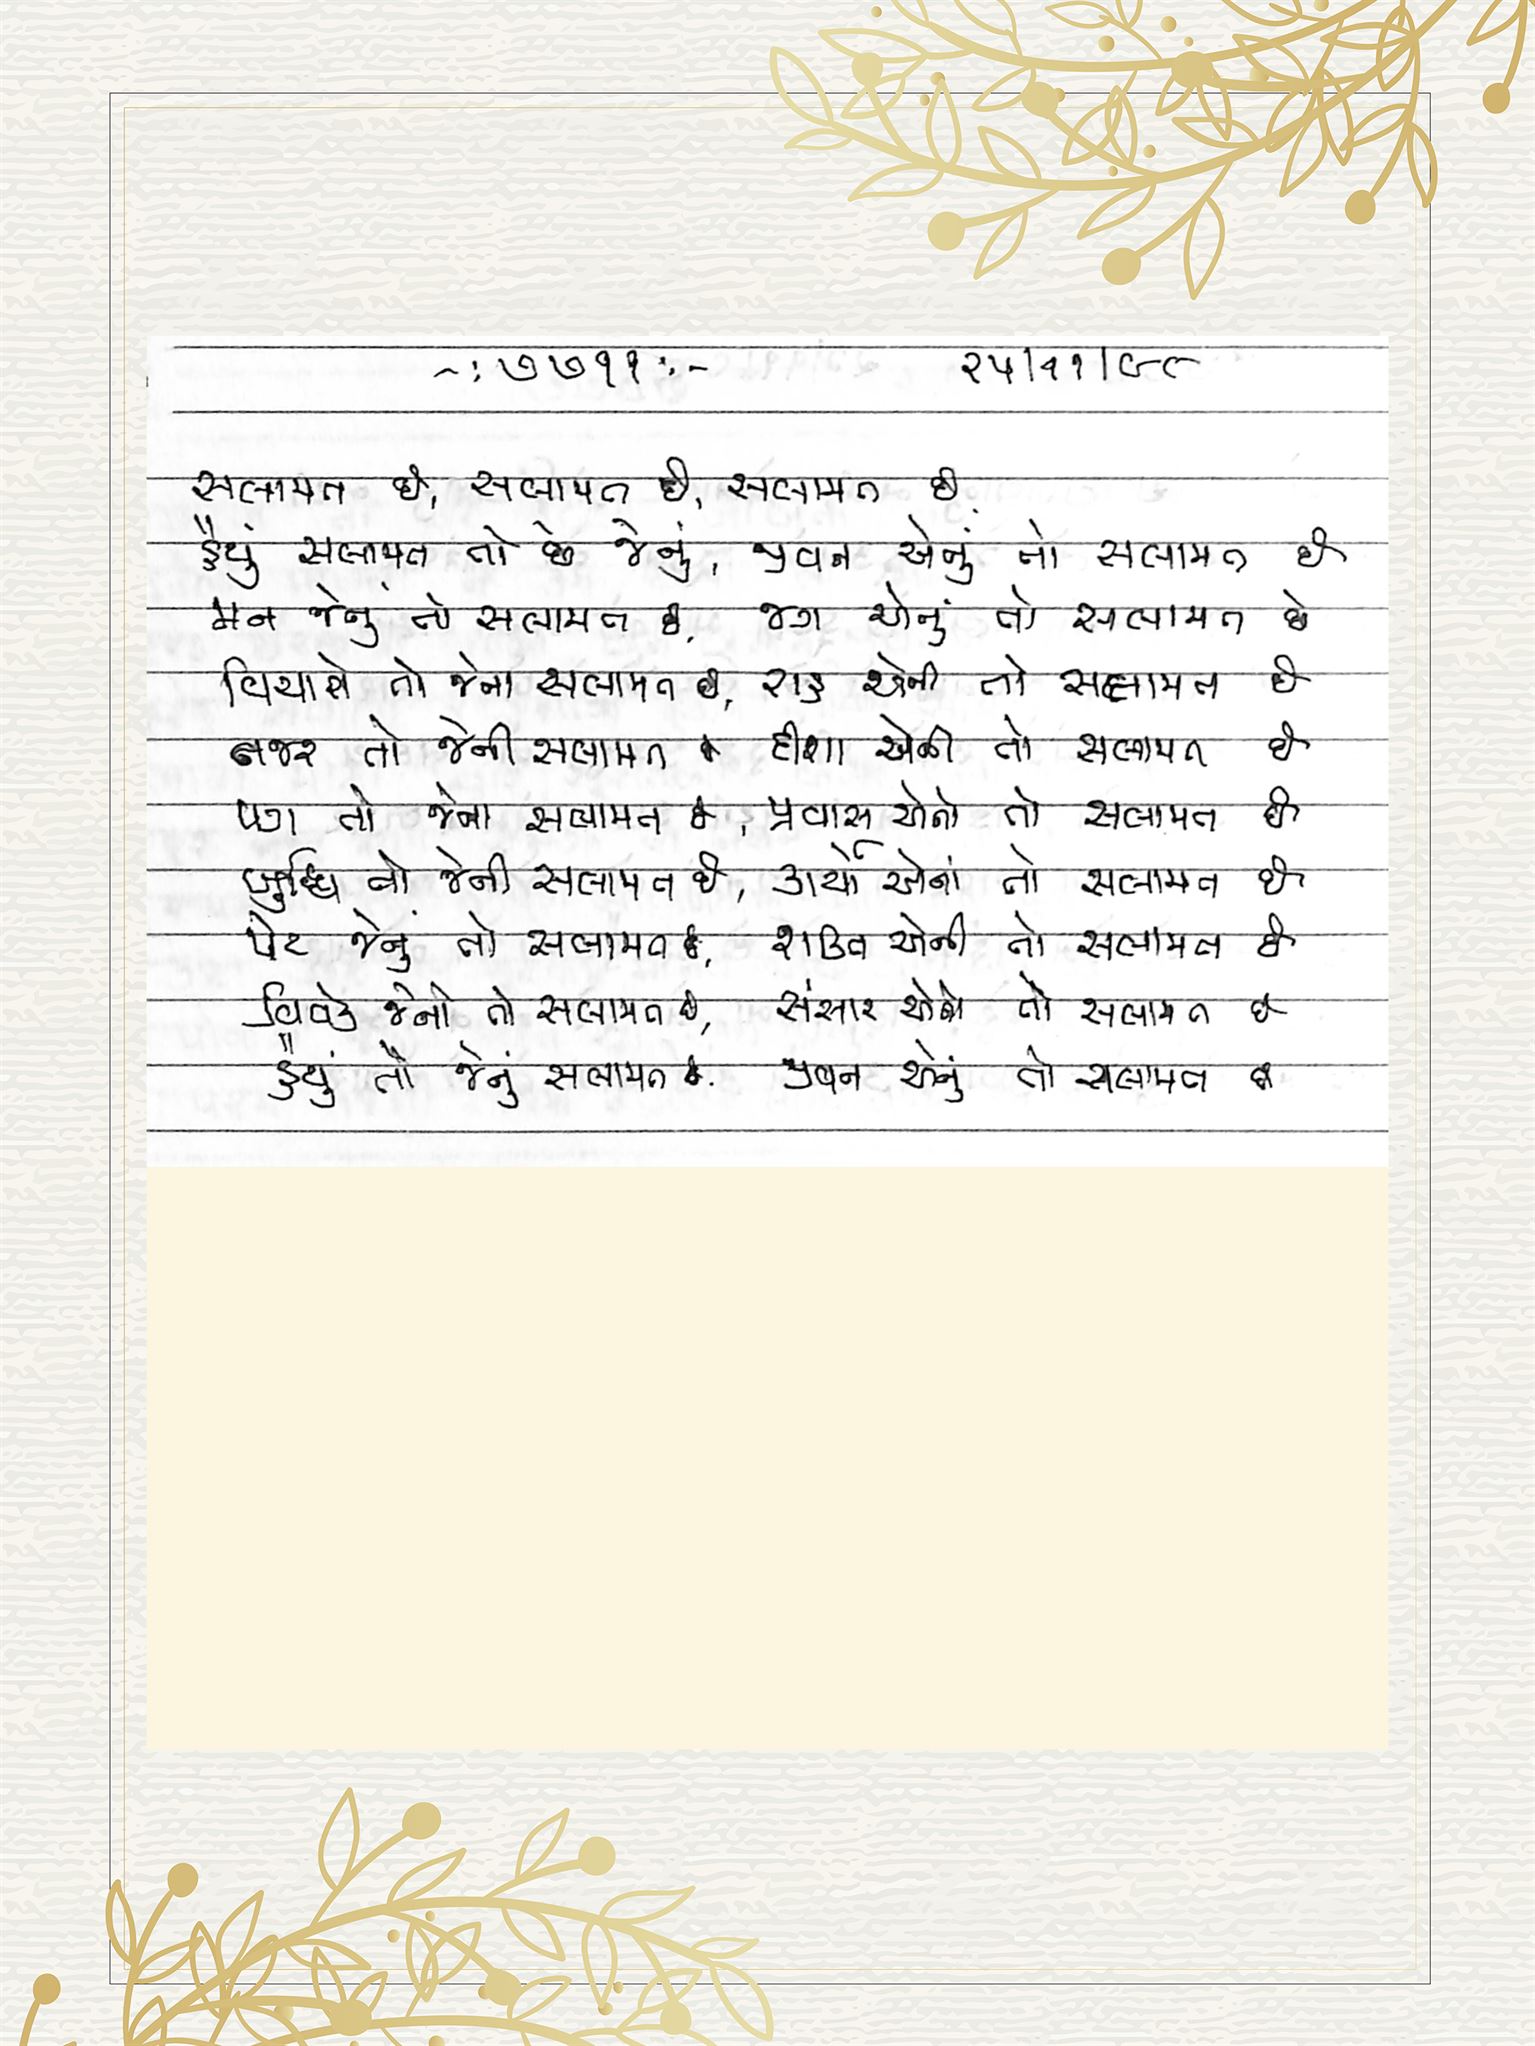 ~: ૭૭૧૧ :- ૨૫/૧૧/૯૮
સલામત છે, સલામત છે, સલામત છે
હૈયું સલામત તો છે જેનું, જીવન એનું તો સલામત છે
મન જેનું તો સલામત છે, જગ એનું તો સલામત છે
વિચારો તો જેના સલામત છે, રાહ એની તો સલામત છે
નજર તો જેની સલામત છે દીશા એની તો સલામત છે
પગ તો જેના સલામત છે, પ્રવાસ એનો તો સલામત છે
બુદ્ધિ તો જેની સલામત છે, કાર્યો એનાં તો સલામત છે
પેટ જેનું તો સલામત છે, શક્તિ એની તો સલામત છે
વિવેક જેનો તો સલામત છે, સંસાર એનો તો સલામત છે
હૈયું તો જેનું સલામત છે. જીવન એનું તો સલામત છે